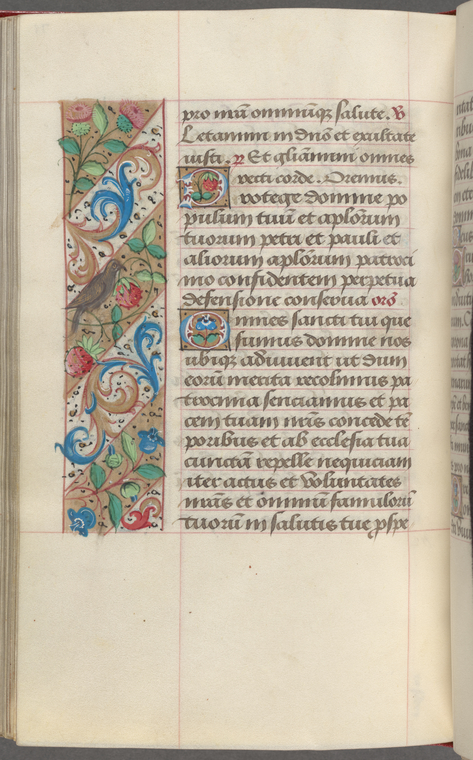 pro nrãm omnimuqȝ salute. ℣
Letamini in dnõ et exultate
iusti. ℟ Et gliamini omnes
recti corde. Oremus.
Protege domine po
pulum tuũ et aplorum
tuorum petri et pauli et
aliorum aplorũm patroci
nio confidentem perpetua
defensione conserua orõ
Omnes sancti tui que
sumus domine nos
ubiqȝ adiuuent ut dum
eorũ merita recolimus pa
trocinia senciamus et pa
cem tuam nrĩs concede tẽ
poribus et ab ecclesia tua
cunctã repelle nequiciam
iter actus et voluntates
nrãs et omniũm famulorũ
tuorũ in salutis tue pspe